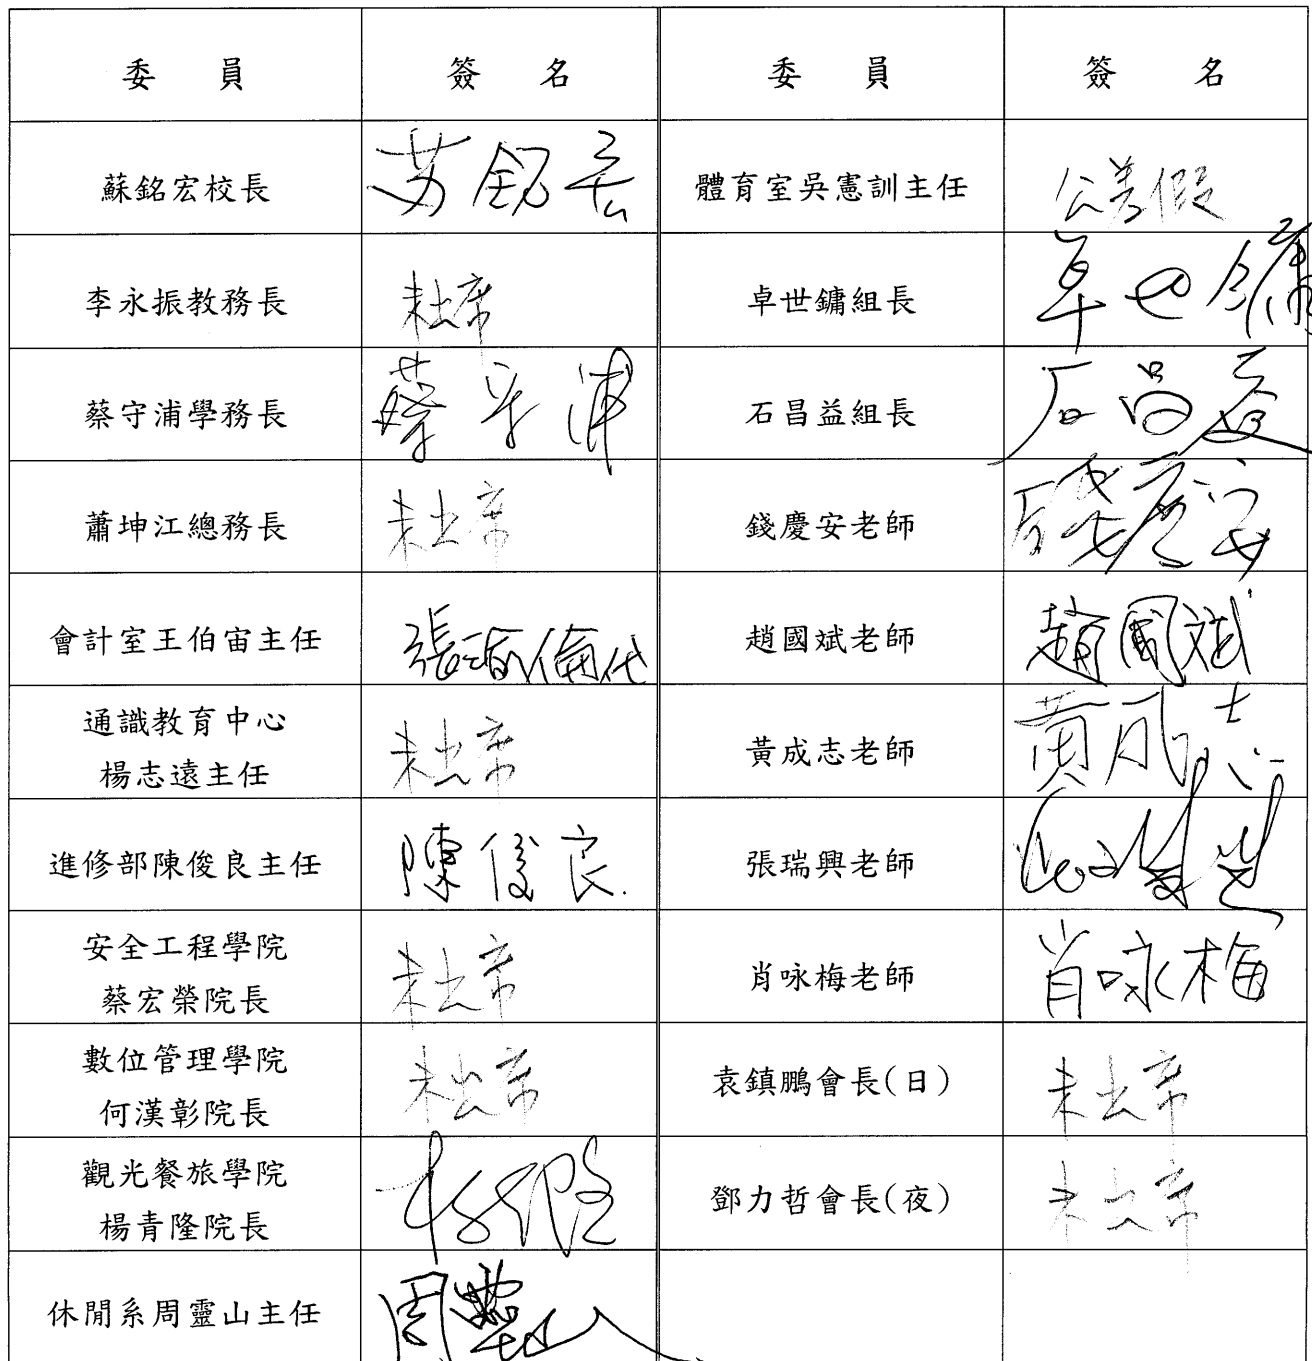 委員 簽名 委員 簽名
蘇銘宏校長 苏銘宏 體育室吳憲訓主任 公差假
李永振教務長 未出席 卓世鏞組長 卓世鏞
蔡守浦學務長 蔡守浦 石昌益組長 石昌益
蕭坤江總務長 未出席 錢慶安老師 錢慶安
會計室王伯宙主任 代 趙國斌老師 趙國斌
通識教育中心
楊志遠主任 未出席 黃成志老師 黃成志
進修部陳俊良主任 陳俊良 張瑞興老師
安全工程學院
蔡宏榮院長 未出席 肖咏梅老師 肖咏梅
數位管理學院
何漢彰院長 未出席 袁鎮鵬會長(日) 未出席
觀光餐旅學院
楊青隆院長 鄧力哲會長(夜) 未出席
休閒系周靈山主任 周靈山